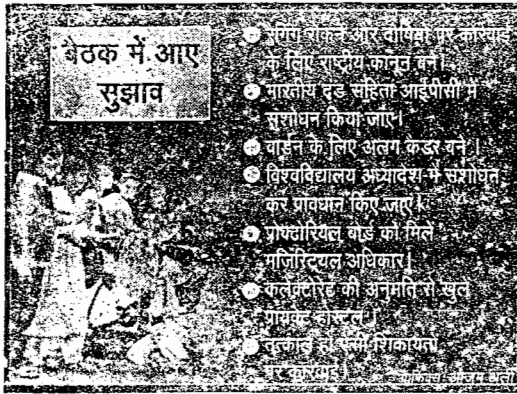 बैठक में आए
सुझाव
रैगिंग रोकने और दोषियों पर कार्रवाई
के लिए राष्ट्रीय कानून बने।
भारतीय दंड संहिता आईपीसी में
संशोधन किया जाए।
वार्डन के लिए अलग केडर बने।
विश्वविद्यालय अध्यादेश में संशोधन
कर प्रावधान किए जाए।
प्रॉक्टोरियल बोर्ड को मिले
मजिस्ट्रियल अधिकार।
कलेक्टोरेट की अनुमति से खुले
प्रायवेट हॉस्टल।
तत्काल हो शिकायतों
पर कार्रवाई।